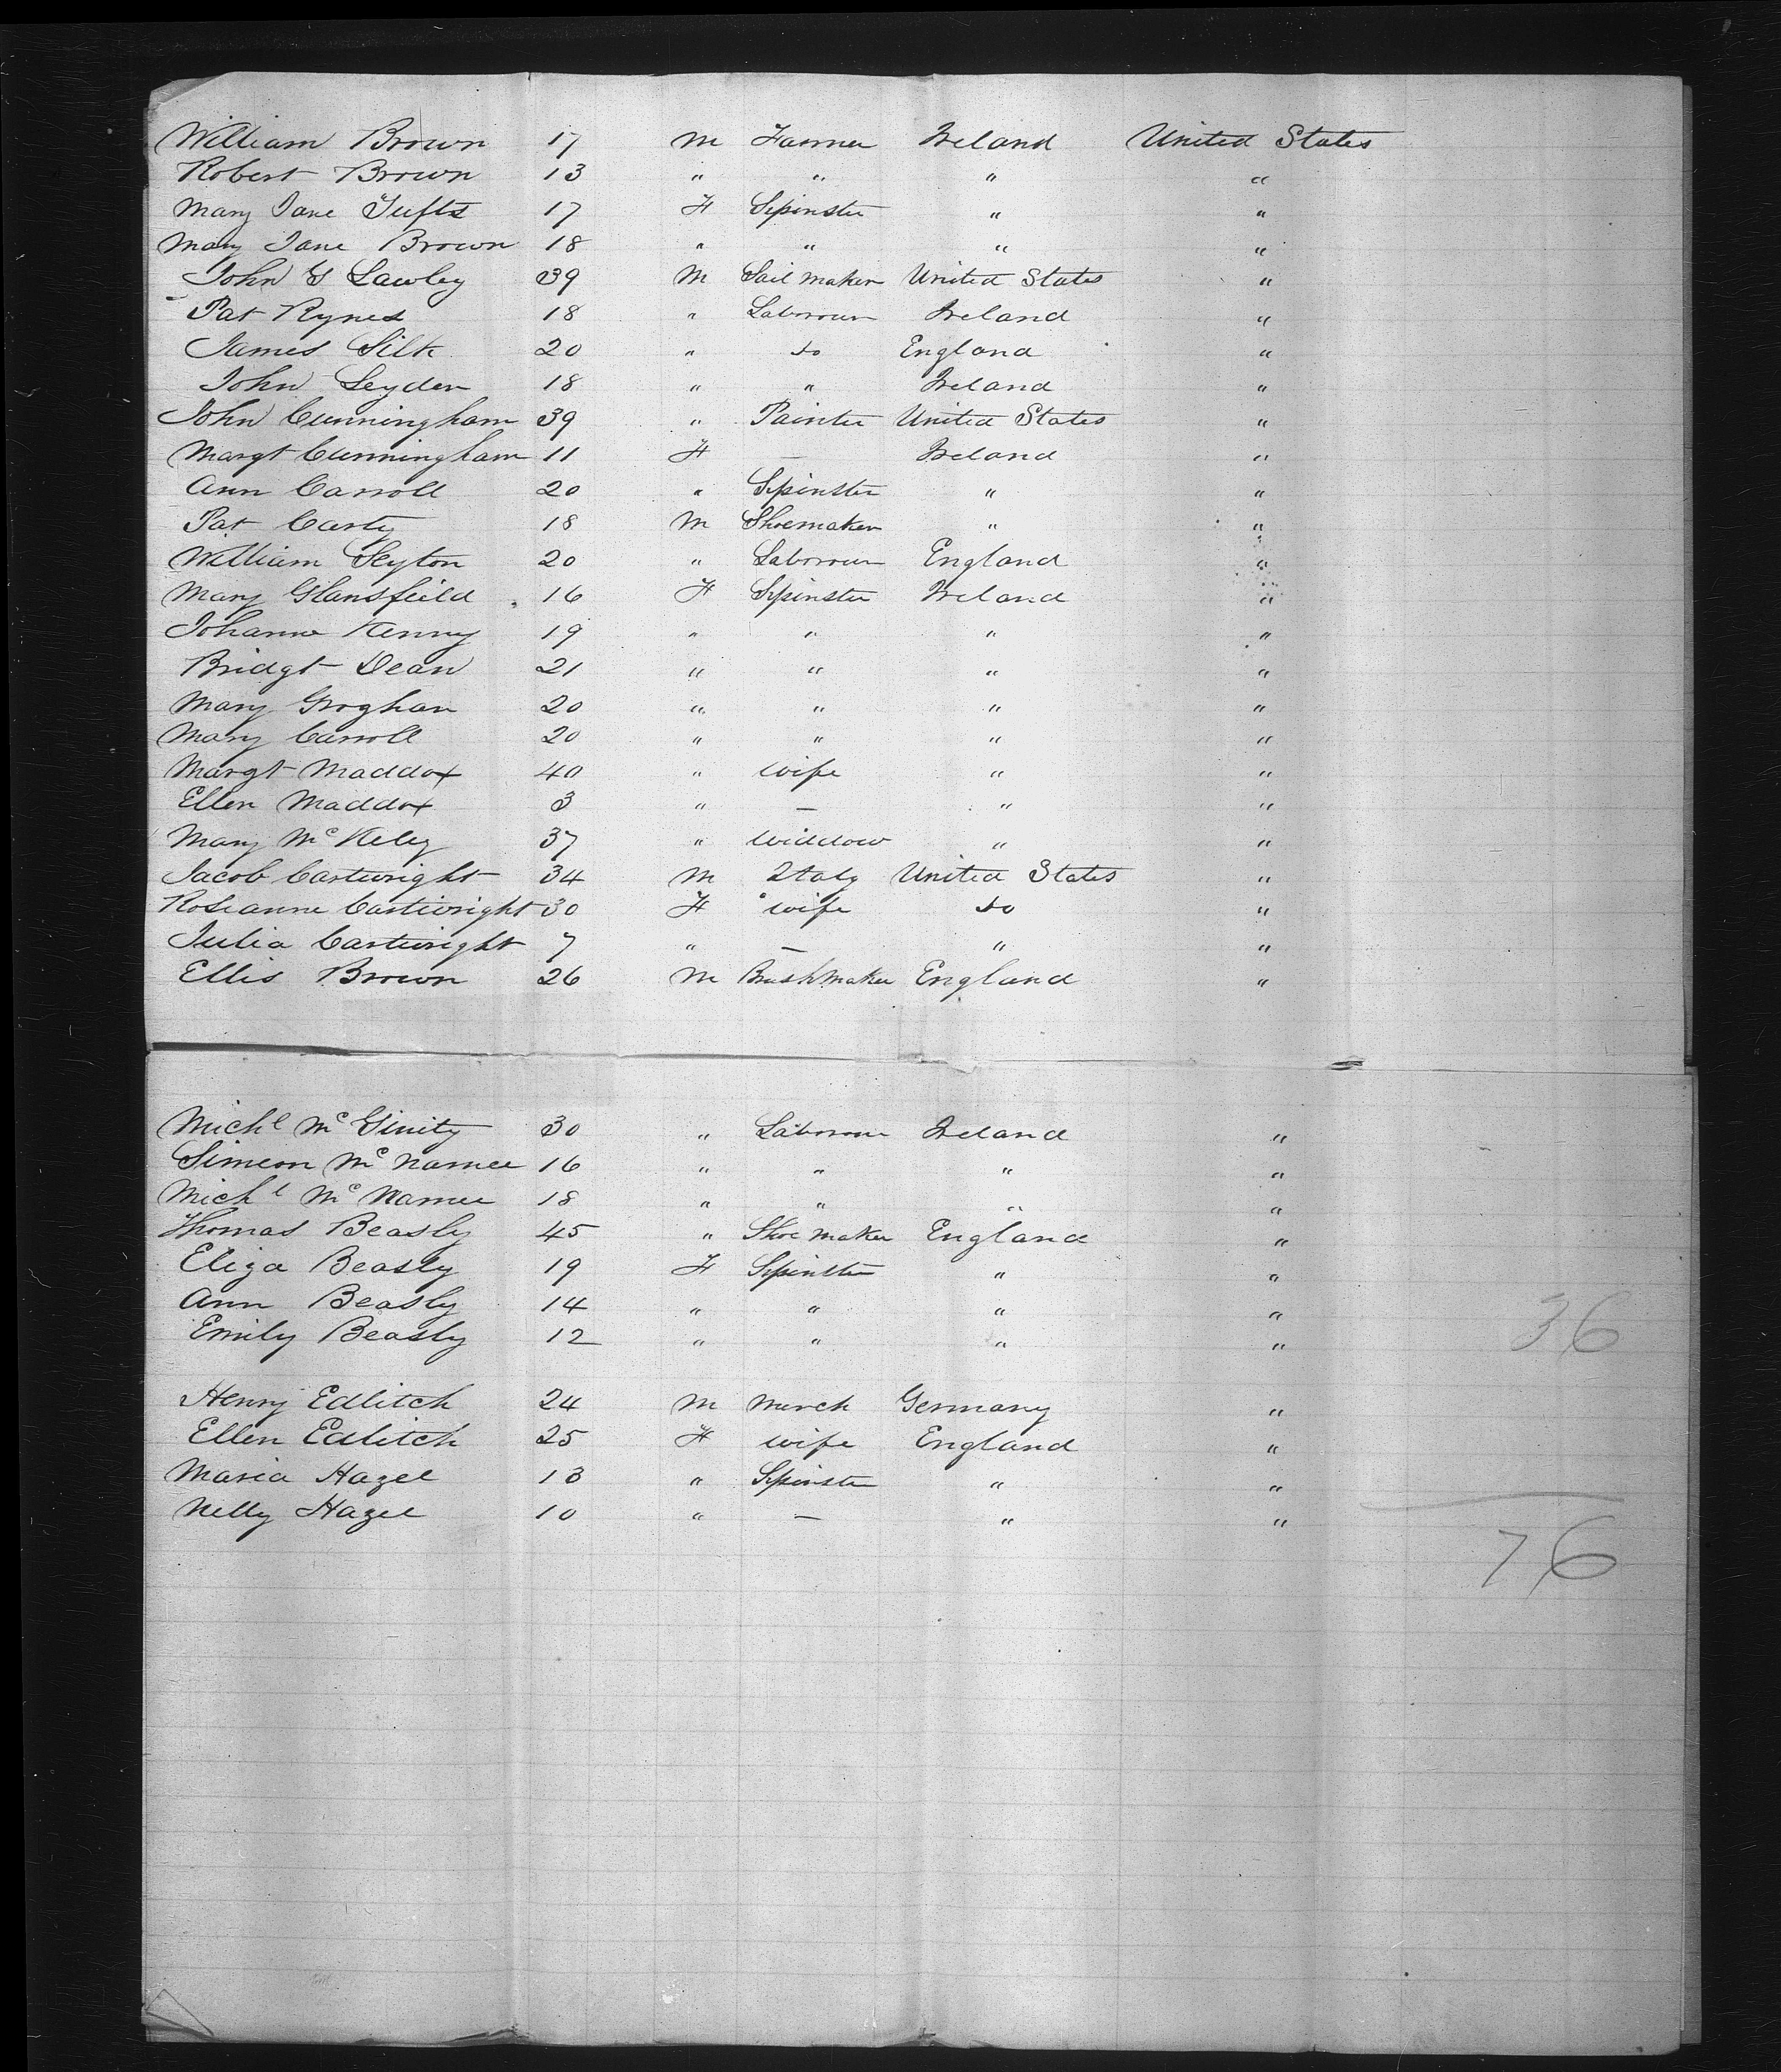 William Brown 17 M Farmer Ireland United States
Robert Brown 13 " " " "
Mary Jane Tufts 17 F Spinster " "
Mary Jane Brown 18 " " " "
John S Lawley 39 M Sail maker United States "
Pat Rynes 18 " Labourer Ireland "
James Silk 20 " do England "
John Leyden 18 " " Ireland "
John Cunningham 39 " Painter United States "
Margt Cunningham 11 F — Ireland "
Ann Carroll 20 " Spinster " "
Pat Carty 18 M Shoemaker " "
William Seyton 20 " Labourer England "
Mary Glansfield 16 F Spinster Ireland "
Johanna Kenny 19 " " " "
Bridgt Dean 21 " " " "
Mary Groghan 20 " " " "
Mary Carroll 20 " " " "
Margt Maddox 40 " wife " "
Ellen Maddox 3 " — " "
Mary McKeley 37 " widdow " "
Jacob Cartwright 34 M Italy United States "
Roseanne Cartwright 30 F wife do "
Julia Cartwright 7 " — " "
Ellis Brown 26 M Brushmaker England "
Michl McGinity 30 " Labourer Ireland "
Simeon McNamee 16 " " " "
Michl McNamee 18 " " " "
Thomas Beasly 45 " Shoe maker England "
Eliza Beasly 19 F Spinster " "
Ann Beasly 14 " " " "
Emily Beasly 12 " " " "
36
Henry Edlitch 24 M Merch Germany "
Ellen Edlitch 25 F wife England "
Maria Hazel 13 " Spinster " "
Nelly Hazel 10 " — " "
76